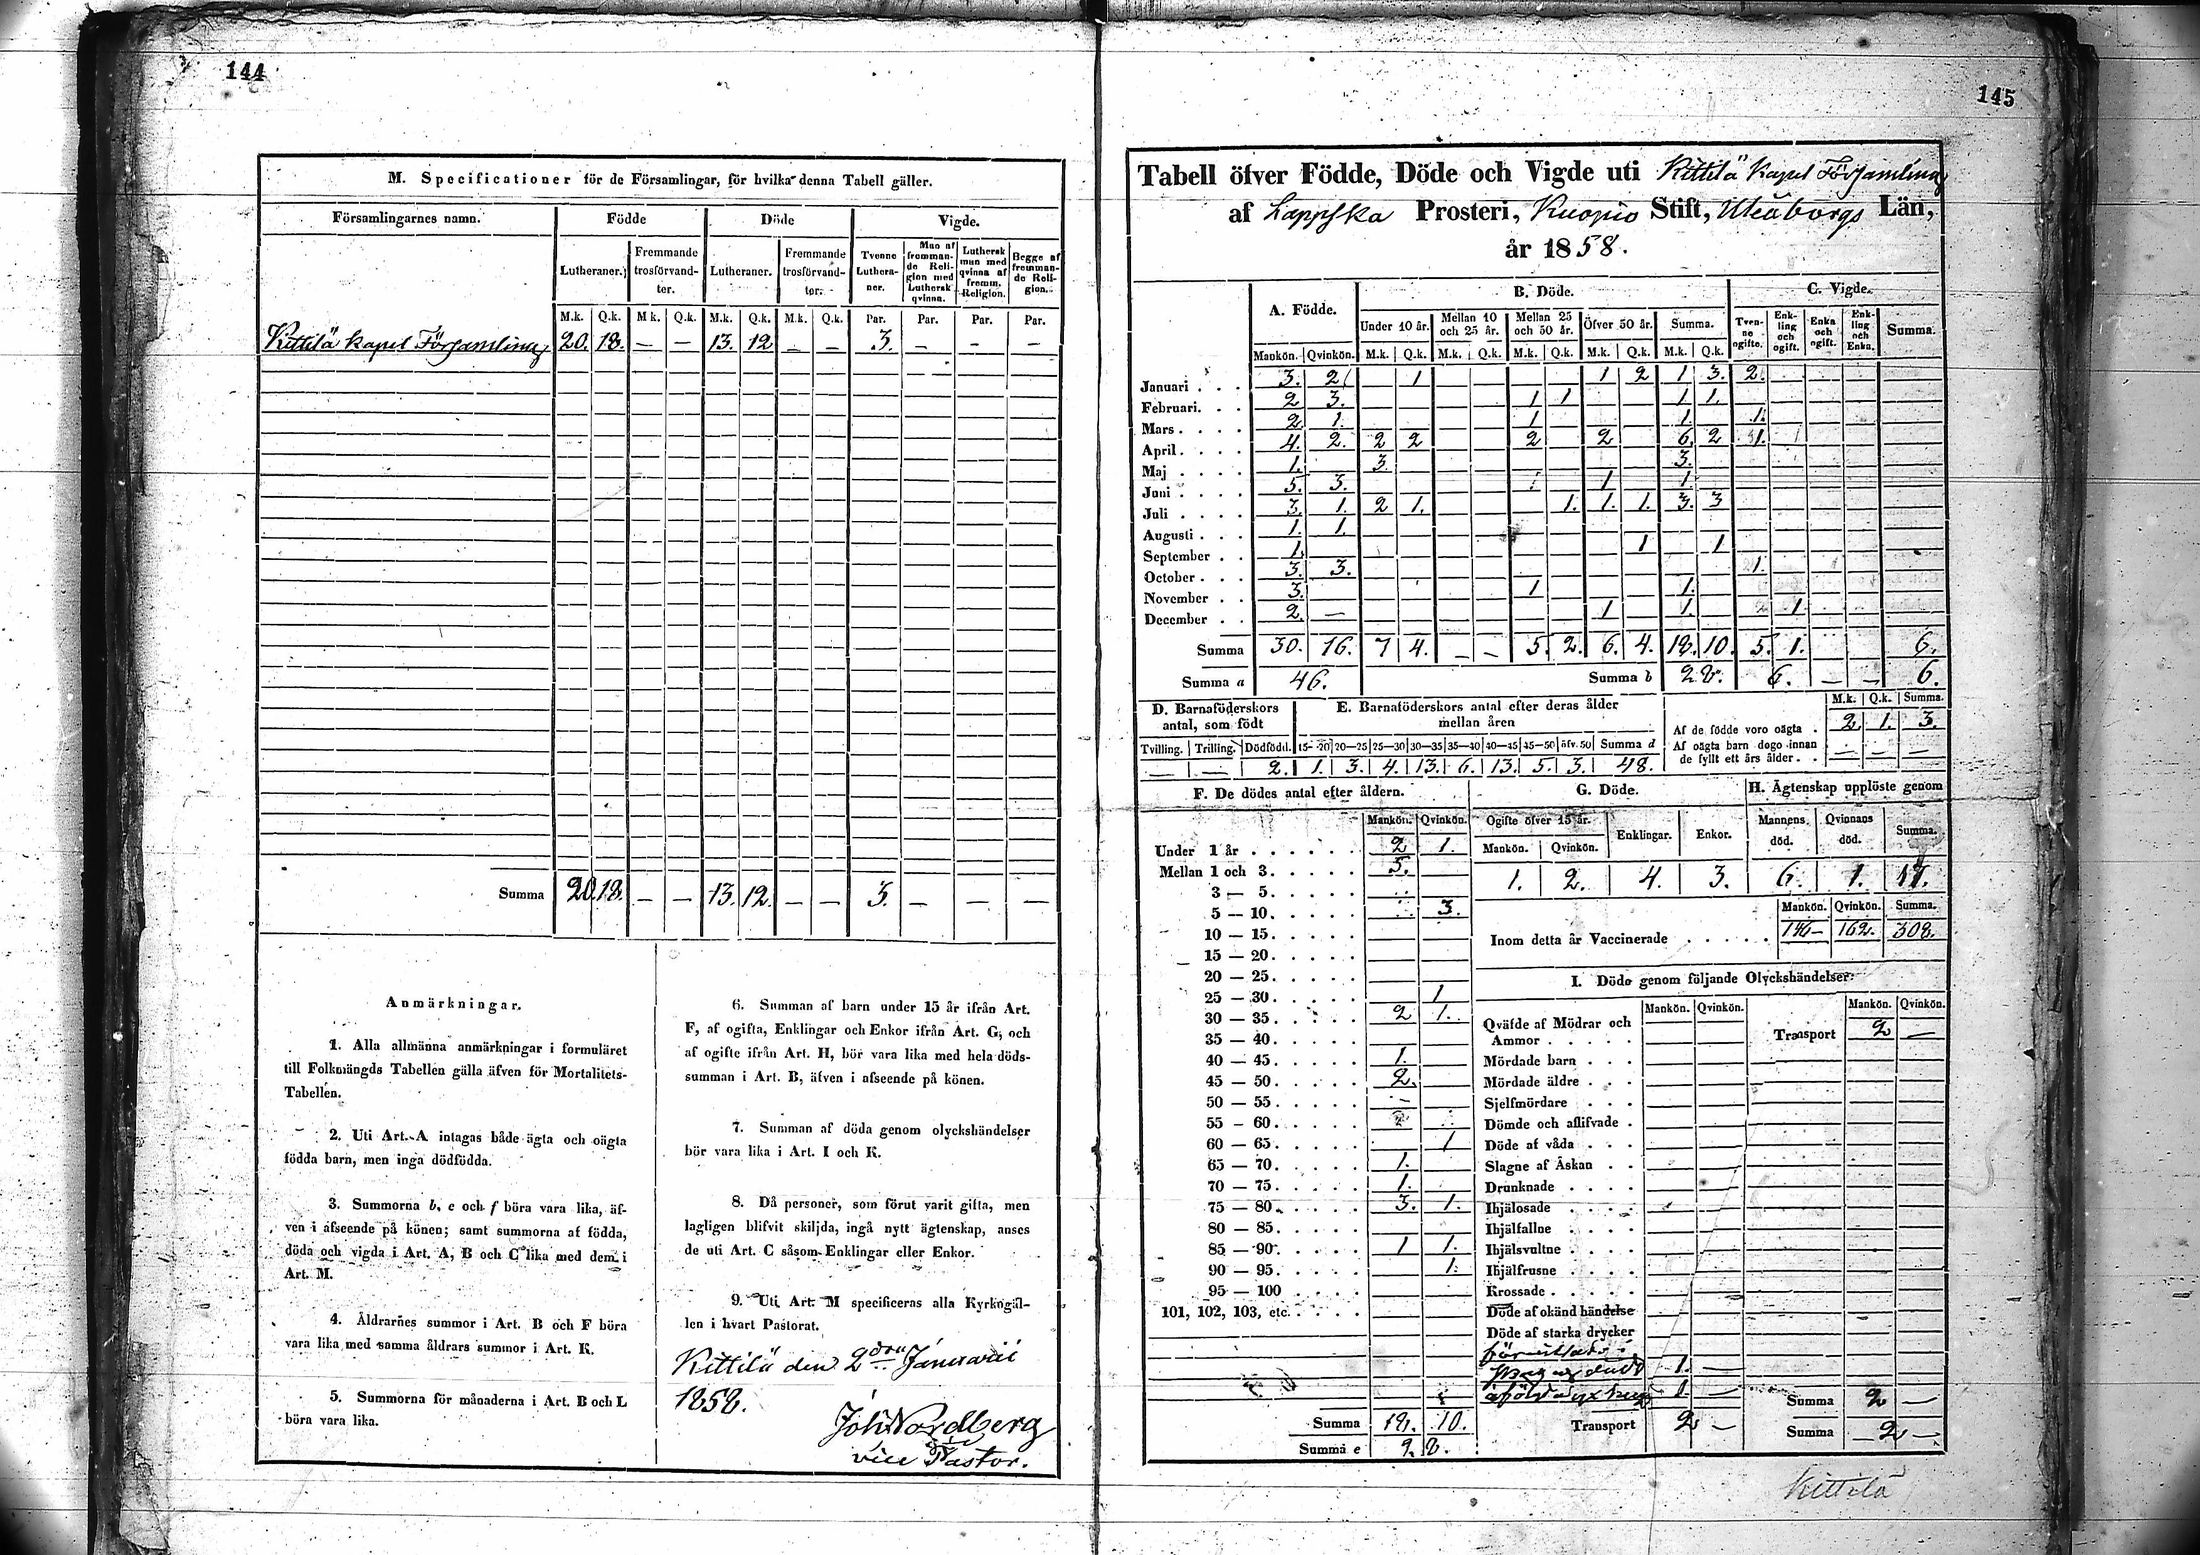 144
M. Specificationer för de Församlingar, för hvilka denna Tabell gäller.
Församlingarnes namn. Födde Döde Vigde.
Lutheraner. Fremmande trosförvandter. Lutheraner. Fremmande trosförvandter. Tvenne Lutheraner. Man af fremmande Religion med Luthersk qvinna. Luthersk man med qvinna af fremm. Religion. Begge af fremmande Religion.
M.k. Q.k. M.k. Q.k. M.k. Q.k. M.k. Q.k. Par. Par. Par. Par.
Kittilä kapel Församling 20. 18. — — 13. 12 — — 3. — — —
Summa 20. 18. — — 13. 12. — — 3. — — —
Anmärkningar.
1. Alla allmänna anmärkningar i formuläret
till Folkmängds Tabellen gälla äfven för Mortalitets-
Tabellen.
2. Uti Art. A intagas både ägta och oägta
födda barn, men inga dödfödda.
3. Summorna b, e och f böra vara lika, äf-
ven i afseende på könen; samt summorna af födda,
döda och vigda i Art. A, B och C lika med dem i
Art. M.
4. Åldrarnes summor i Art. B och F böra
vara lika med samma åldrars summor i Art. K.
5. Summorna för månaderna i Art. B och L
böra vara lika.
6. Summan af barn under 15 år ifrån Art.
F, af ogifta, Enklingar och Enkor ifrån Art. G, och
af ogifte ifrån Art. H, bör vara lika med hela döds-
summan i Art. B, äfven i afseende på könen.
7. Summan af döda genom olyckshändelser
bör vara lika i Art. I och K.
8. Då personer, som förut varit gifta, men
lagligen blifvit skiljda, ingå nytt ägtenskap, anses
de uti Art. C såsom Enklingar eller Enkor.
9. Uti Art. M specificeras alla Kyrkogäl-
len i hvart Pastorat.
Kittilä den 2dra Januarii
1858.
Joh. Nordberg
vice Pastor.
145
Tabell öfver Födde, Döde och Vigde uti Kittilä Kapel Församling
af Lappska Prosteri, Kuopio Stift, Uleåborgs Län,
år 1858.
A. Födde. B. Döde. C. Vigde.
Under 10 år. Mellan 10 och 25 år. Mellan 25 och 50 år. Öfver 50 år. Summa. Tvenne ogifte. Enkling och ogift. Enka och ogift. Enkling och Enka. Summa.
Mankön. Qvinkön. M.k. Q.k. M.k. Q.k. M.k. Q.k. M.k. Q.k. M.k. Q.k.
Januari . . . 3. 2 1 1 2 1 3. 2.
Februari. . . 2 3. 1 1 1 1.
Mars . . . . 2 1. 1 1. 1.
April . . . . 4. 2. 2 2 2 2 6. 2 1.
Maj . . . . 1. 3. 3.
Juni . . . . 5. 3. 1 1.
Juli . . . . 3. 1. 2 1. 1. 1. 1. 3. 3
Augusti . . . 1. 1.
September . . 1. 1 1
October . . . 3. 3. 1.
November . . 3. 1 1.
December . . 2. — 1 1. 1
Summa 30. 16. 7 4. — — 5. 2. 6. 4. 18. 10. 5. 1. 6.
Summa a 46. Summa b 28. 6. — — 6.
D. Barnaföderskors antal, som födt
E. Barnaföderskors antal efter deras ålder mellan åren
Tvilling. Trilling. Dödfödd. 15—20 20—25 25—30 30—35 35—40 40—45 45—50 öfv. 50 Summa d
— — 2. 1. 3. 4. 13. 6. 13. 5. 3. 48.
M.k. Q.k. Summa.
Af de födde voro oägta . 2. 1. 3.
Af oägta barn dogo innan de fyllt ett års ålder . . — — —
F. De dödes antal efter åldern.
Mankön. Qvinkön.
Under 1 år . . . . . . 2 1.
Mellan 1 och 3. . . . . 5.
3 — 5. . . . .
5 — 10. . . . . 3.
10 — 15. . . . .
15 — 20. . . . .
20 — 25. . . . .
25 — 30. . . . . 1
30 — 35. . . . . 2 1.
35 — 40. . . . .
40 — 45. . . . . 1.
45 — 50. . . . . 2.
50 — 55. . . . .
55 — 60. . . . .
60 — 65. . . . . 1
65 — 70. . . . . 1.
70 — 75. . . . . 1.
75 — 80. . . . . 3. 1.
80 — 85. . . . .
85 — 90. . . . . 1 1.
90 — 95. . . . . 1.
95 — 100 . . . .
101, 102, 103, etc. . . . .
Summa 18. 10.
Summa e 28.
G. Döde.
Ogifte öfver 15 år. Enklingar. Enkor.
Mankön. Qvinkön.
1. 2. 4. 3.
H. Ägtenskap upplöste genom
Mannens död. Qvinnans död. Summa.
6. 1.
Mankön. Qvinkön. Summa.
Inom detta år Vaccinerade . . . . . 146 162. 308.
I. Döde genom följande Olyckshändelser:
Mankön. Qvinkön. Mankön. Qvinkön.
Qväfde af Mödrar och Ammor . . . . .
Transport 2 —
Mördade barn . . .
Mördade äldre . . .
Sjelfmördare . . .
Dömde och aflifvade .
Döde af våda . . .
Slagne af Åskan . .
Drunknade . . . .
Ihjälosade . . . .
Ihjälfallne . . . .
Ihjälsvultne . . . .
Ihjälfrusne . . . .
Krossade . . . . .
Döde af okänd händelse
Döde af starka drycker
1. —
1 —
Transport 2 —
Summa 2 —
Summa — 2 —
Kittilä